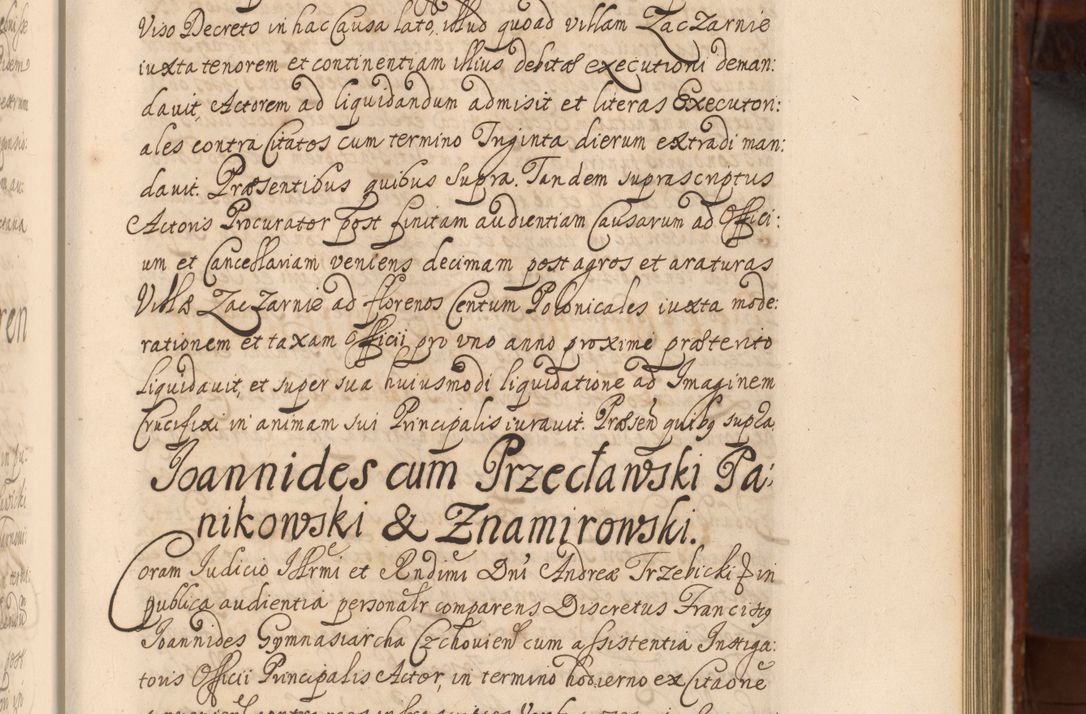 Viso Decreto in hac Causa lato, illud quoad villam Zaczarnie
iuxta tenorem et continentiam illius debitæ executioni deman:
davit, Actorem ad liquidandum admisit et literas Executori:
ales contra Citatos cum termino Triginta dierum extradi man:
davit. Præsentibus quibus supra. Tandem suprascriptus
Actoris Procurator post finitam audientiam Causarum ad Offici:
um et Cancellariam veniens decimam post agros et araturas
Villæ Zaczarnie ad florenos Centum Polonicales iuxta mode:
rationem et taxam Officii, pro uno anno proxime præterito
liquidavit, et super sua huiusmodi liquidatione ad Imaginem
Crucifixi in animam sui Principalis iuravit. Præsen quibg supra
Ioannides cum Przecławski Pa:
nikowski & Znamirowski.
Coram Iudicio Illrmi et Rndimi Dni Andreæ Trzebicki in
publica audientia personalr comparens Discretus Franciscg
Ioannides Gymnasiarcha Czchovien cum assistentia Instiga:
toris Officii Principalis Actor, in termino hodierno ex Citaone